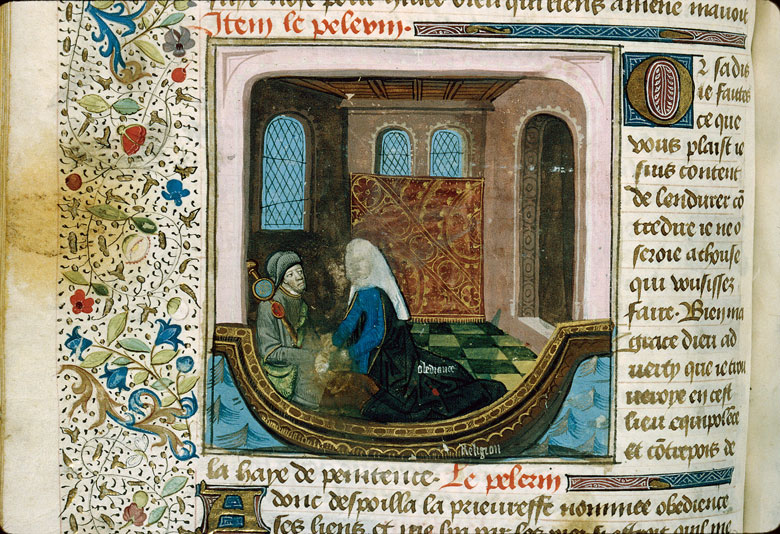 Item le pelerin.
O r sa dis
ie fautes
ce que
vous plaist ie
suis content
de lendurer cõ
tredire ie ne o
seroie a chouse
qui vousissez
faire. Bien ma
grace dieu ad
verty que ie trou
veroye en cest
lieu equipolẽce
et cõtrepois de
obediance
Religion
la haye de penitence. Le pelerin
A donc despoilla la prieuresse nommee obedience
ses liens et me